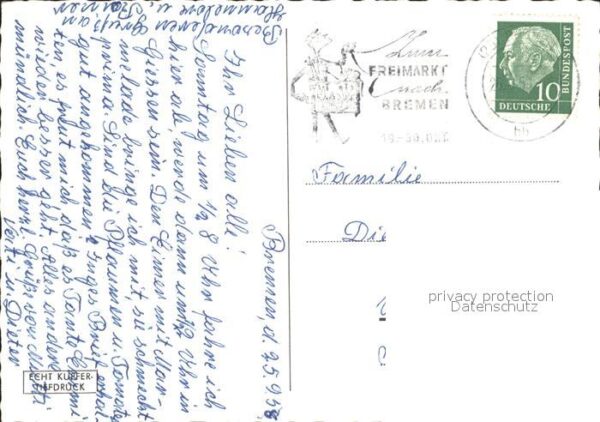 Bremen, d. 25.9.58
Ihr Lieben alle!
Sonntag um 1/2 8 Uhr fahre ich
hier ab, werde dann um 1/2 Uhr in
Giessen sein. Den Eimer mit Mar-
melade bringe ich mit, sie schmeckt
prima. Sind die Pflaumen u. Tomaten
gut angekommen? Inges Brief erhal-
ten, es freut mich daß es Tante Emmi
wieder besser geht. Alles andere
mündlich. Euch herzl. Grüße von Mutti
u. Dieter
Besonderen Gruß an
Hannelore u.
ECHT KUPFER-
TIEFDRUCK
Zum
FREIMARKT
nach
BREMEN
19.-30. OKT.
10
DEUTSCHE
BUNDESPOST
Familie
Die
privacy protection
Datenschutz